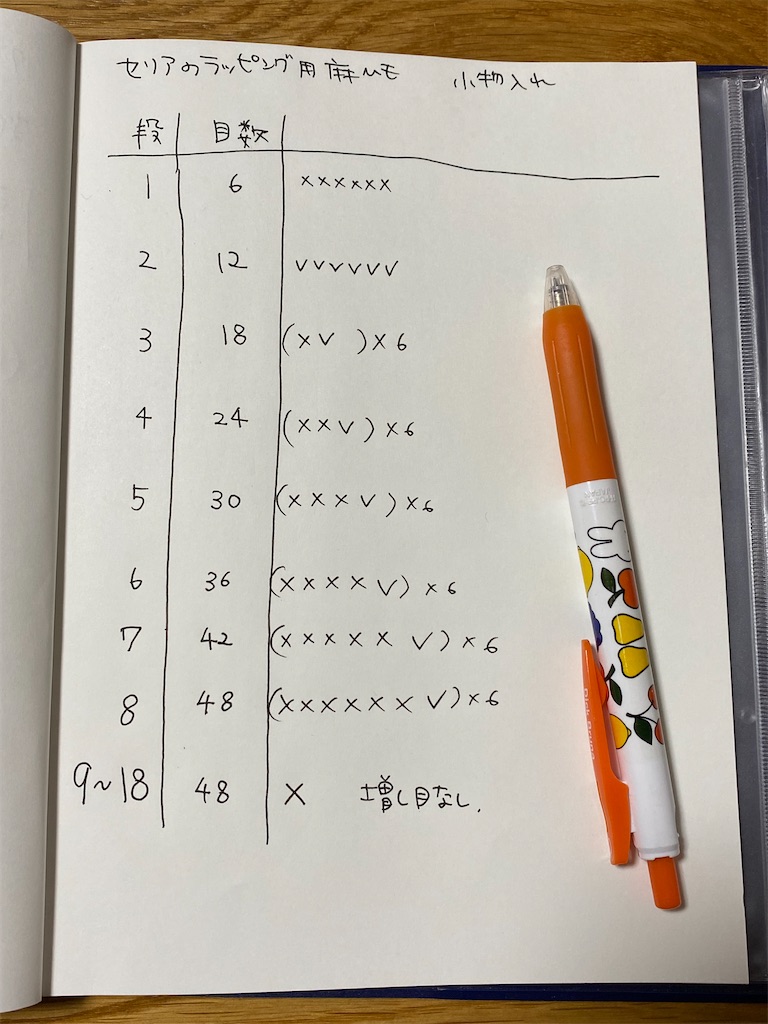 セリアのラッピング用麻ヒモ 小物入れ
段 目数
1 6 ××××××
2 12 VVVVVV
3 18 (×V )×6
4 24 (××V)×6
5 30 (×××V)×6
6 36 (××××V)×6
7 42 (×××××V)×6
8 48 (××××××V)×6
9~18 48 × 増し目なし.
Dick Bruna